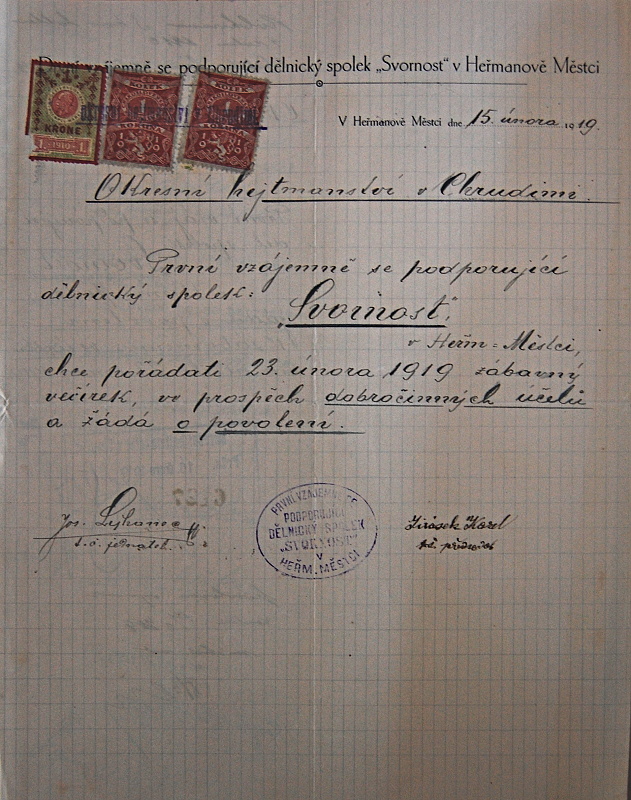 První vzájemně se podporující dělnický spolek „Svornost“ v Heřmanově Městci
V Heřmanově Městci dne 15. února 1919.
KRONE
1. 1910 1.
KOLEK
KOLEK
1
Okresní hejtmanství v Chrudimi.
První vzájemně se podporující
dělnický spolek:
„Svornost“,
v Heřm. Městci,
chce pořádati 23. února 1919 zábavný
večírek, ve prospěch dobročinných účelů
a žádá o povolení.
6627
Jos.
t.č. jednatel.
PRVNÍ VZÁJEMNĚ SE
PODPORUJÍCÍ
DĚLNICKÝ SPOLEK
„SVORNOST“
V
HEŘM. MĚSTCI
Jirásek Karel
t.č. předseda